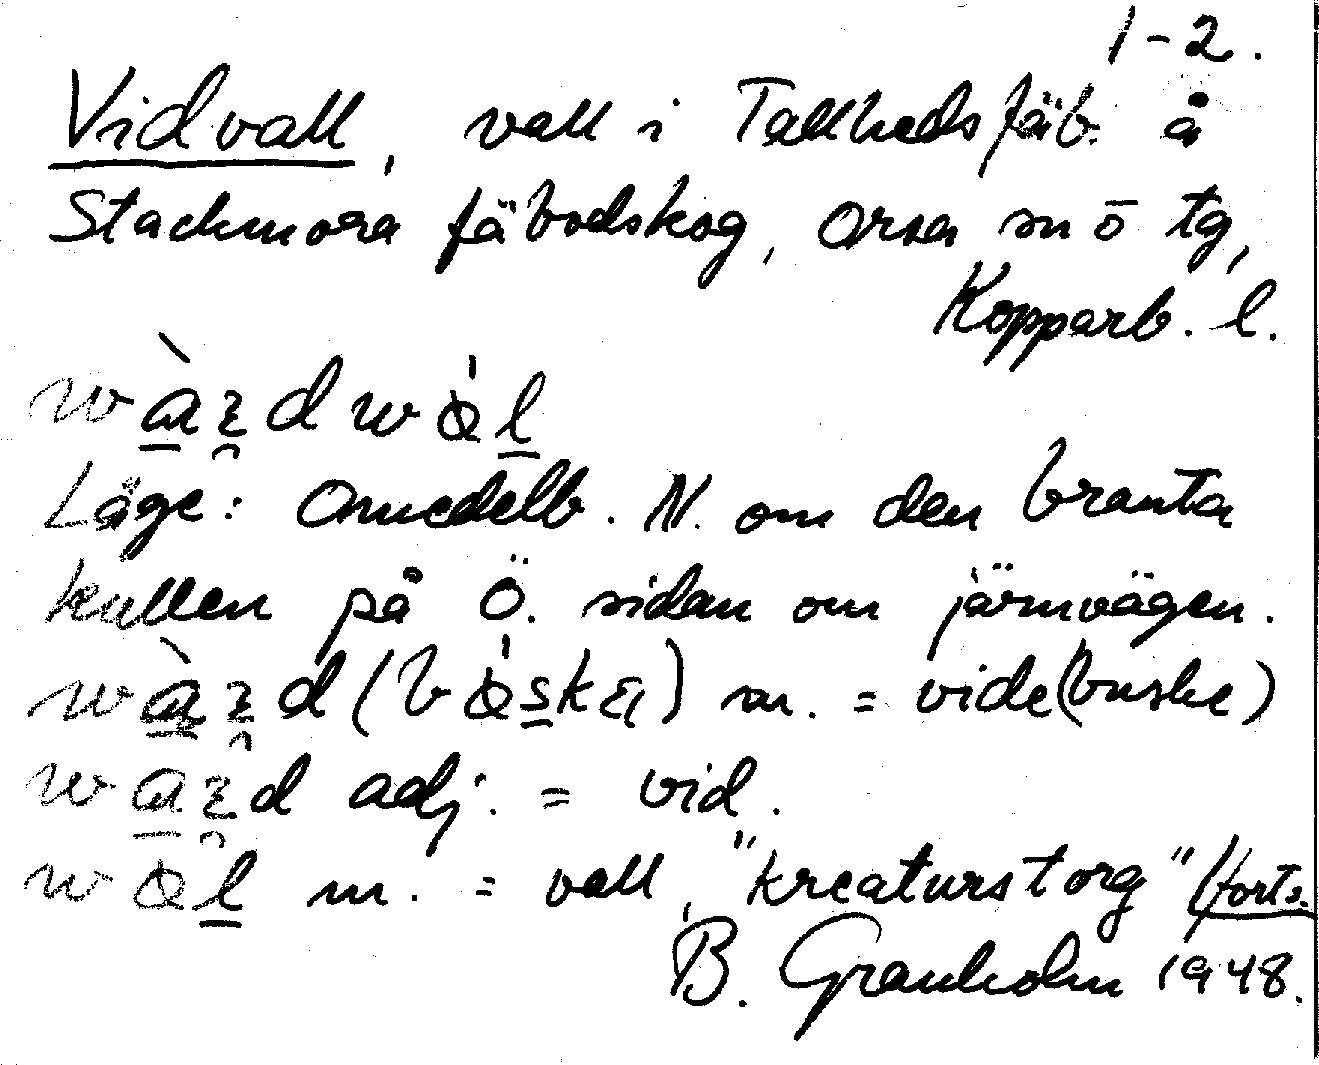 1-2.
Vidvall, vall i Tallhedsfäb. å
Stackmora fäbodskog, Orsa sn ö tg,
Kopparb. l.
Läge: Omedelb. N. om den branta
kullen på Ö. sidan om järnvägen.
m. = vide(buske)
adj. = vid.
m. = vall, "kreaturstorg" (forts.
B. Granholm 1948.